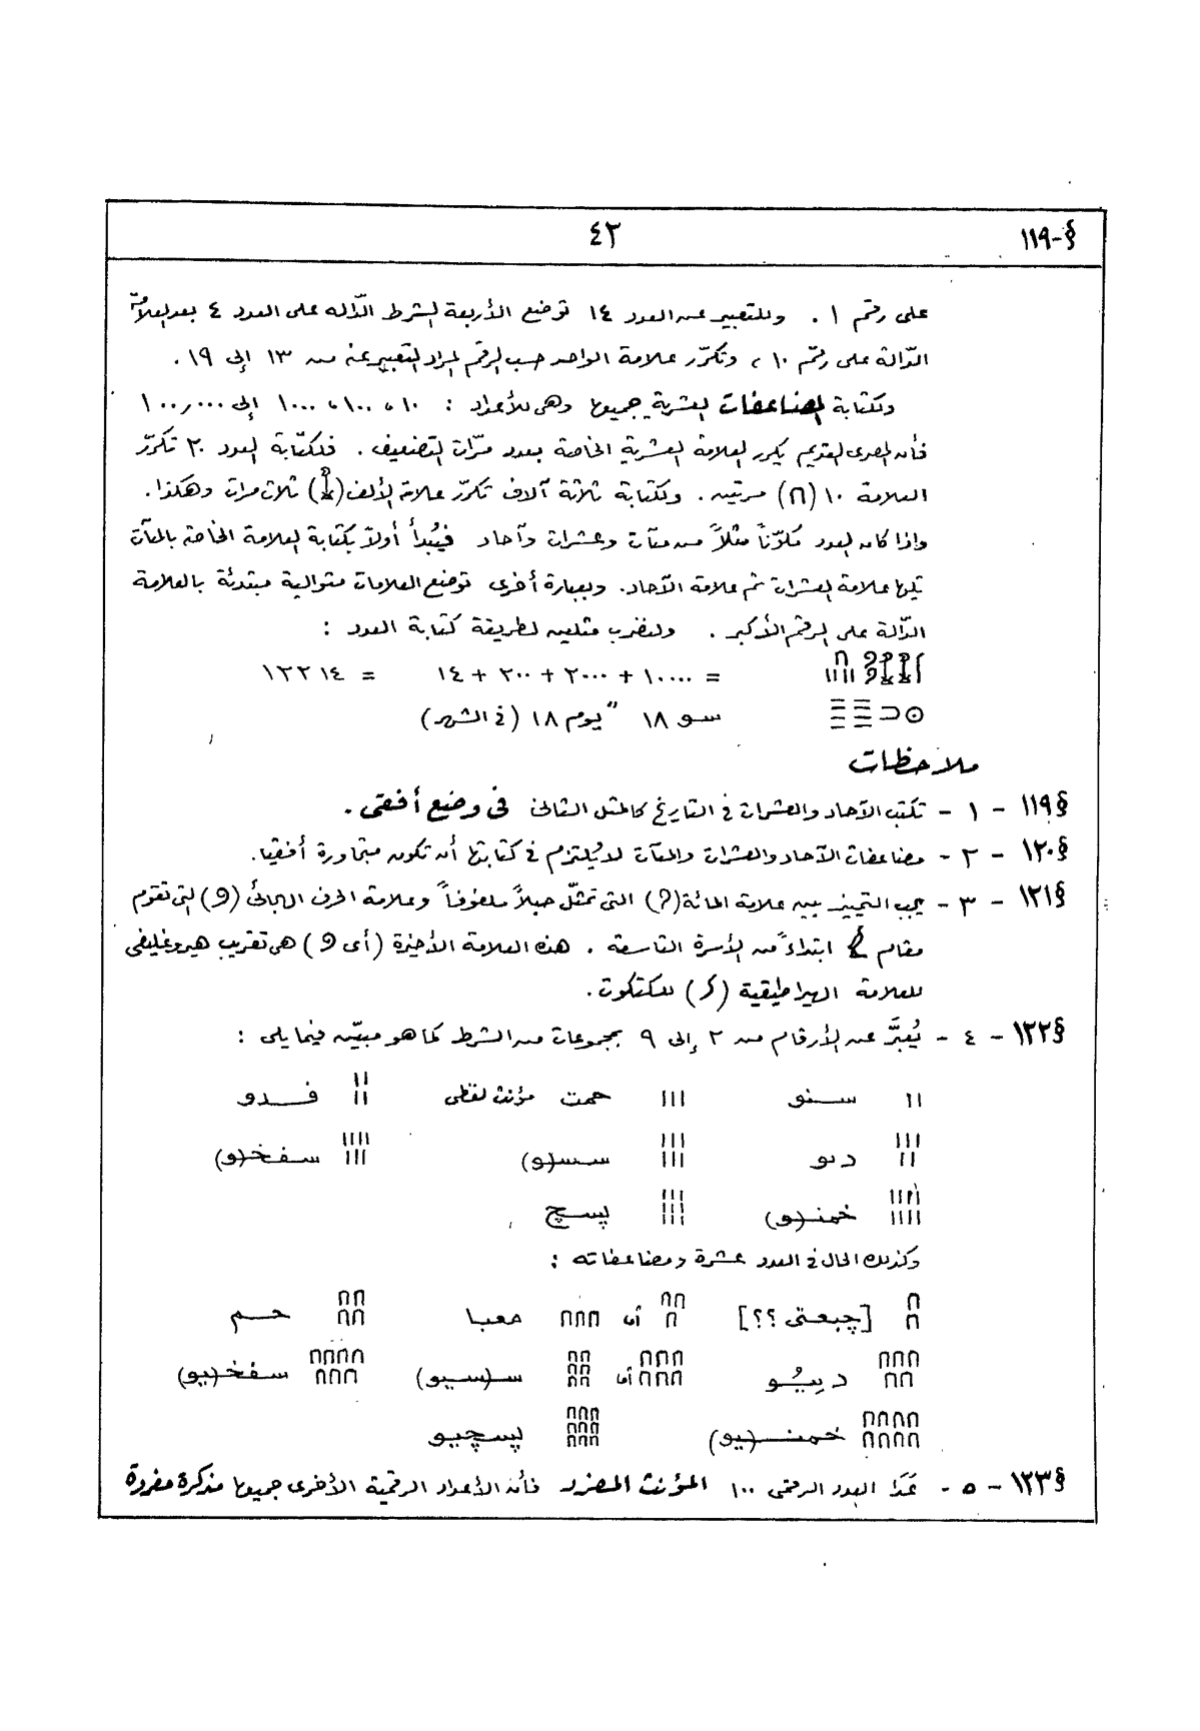 §-١١٩
٤٢
على رقم ١ . وللتعبير عن العدد ١٤ توضع الأربعة الشرط الدّاله على العدد ٤ بعد العلامة
الدّالة على رقم ١٠ ، وتكرّر علامة الواحد حسب الرقم المراد التعبير عنه من ١٣ إلى ١٩ .
ولكتابة المضاعفات العشرية جميعها وهى للأعداد : ١٠ ، ١٠٠ ، ١٠٠٠ إلى ١٠٠,٠٠٠
فأن المصرى القديم يكرر العلامة العشرية الخاصة بعدد مرّات التضعيف . فلكتابة العدد ٢٠ تكرّر
العلامة ١٠ (∩) مرتين . ولكتابة ثلاثة آلاف تكرّر علامة الألف (𓆼) ثلاث مرات وهكذا.
واذا كان العدد مُكوّناً مثلاً من مئآت وعشرات وآحاد فيُبدأ أولاً بكتابة العلامة الخاصة بالمئآت
تليها علامة العشرات ثم علامة الآحاد. وبعبارة أخرى توضع العلامات متوالية مبتدئة بالعلامة
الدّالة على الرقم الأكبر . ولنضرب مثلين لطريقة كتابة العدد :
= ١٠٠٠٠ + ٢٠٠٠ + ٢٠٠ + ١٤ = ١٢٢١٤
سو ١٨ "يوم ١٨ (فى الشهر)
ملاحظات
§١١٩ - ١ - تكتب الآحاد والعشرات فى التاريخ كالمثل الثانى فى وضع أفقى .
§١٢٠ - ٢ - مضاعفات الآحاد والعشرات والمئآت لا يُلتزم فى كتابتها أن تكون متجاورة أفقيا.
§١٢١ - ٣ - يجب التمييز بين علامة المائة (𓍢) التى تمثّل حبلاً ملفوفاً وعلامة الحرف الهجائى (𓏲) التى تقوم
مقام 𓅱 ابتداءً من الأسرة التاسعة . هذه العلامة الأخيرة (أى 𓏲) هى تقريب هيروغليفى
للعلامة الهيراطيقية () للكتكوت.
§١٢٢ - ٤ - يُعبَّر عن الأرقام من ٢ إلى ٩ بمجموعات من الشرط كما هو مبيّن فيما يلى :
II سنو III خمت مؤنث لفظى IIII فدو
IIIII ديو IIIIII سسـ(و) IIIIIII سفخـ(و)
IIIIIIII خمنـ(و) IIIIIIIII پسچ
وكذلك الحال فى العدد عشرة ومضاعفاته :
∩∩ [چبعتى ؟؟] ∩∩∩ أو ∩∩∩ معبا ∩∩∩∩ حم
∩∩∩∩∩ دييُو ∩∩∩∩∩∩ أو ∩∩∩∩∩∩ سـ(سيو) ∩∩∩∩∩∩∩ سفخـ(يو)
∩∩∩∩∩∩∩∩ خمنـ(يو) ∩∩∩∩∩∩∩∩∩ پسچيو
§١٢٣ - ٥ - عَدَا العدد الرقمى ١٠٠ المؤنث المفرد فأن الأعداد الرقمية الأخرى جميعها مذكرة مفردة